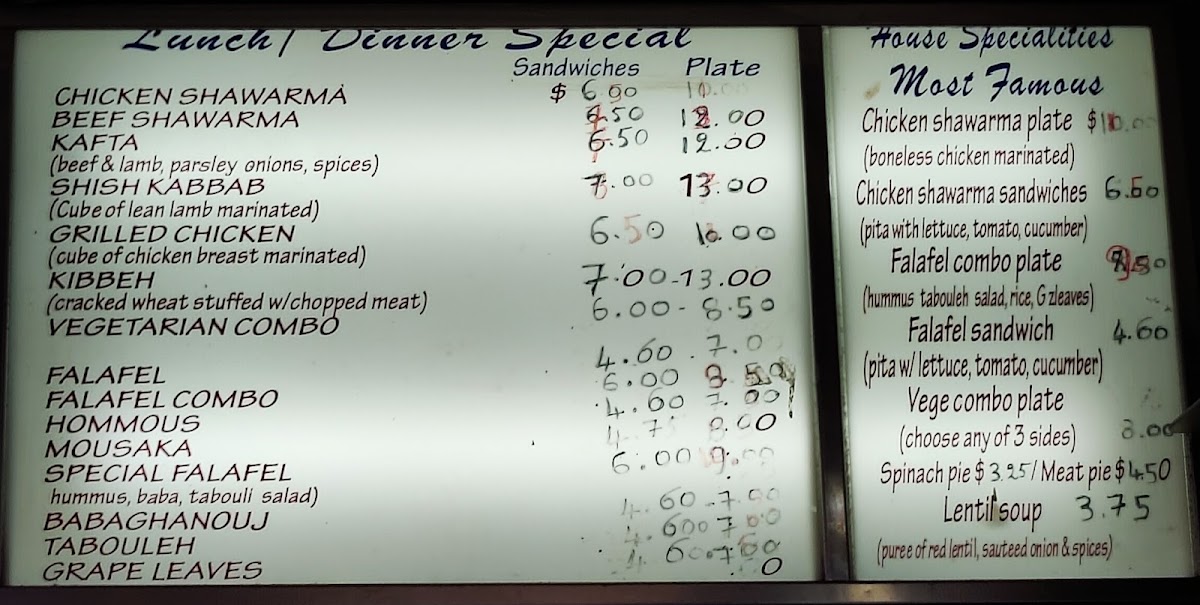 Lunch/ Dinner Special
Sandwiches Plate
CHICKEN SHAWARMA $ 6.00 10.00
BEEF SHAWARMA 6.50 12.00
KAFTA 6.50 12.00
(beef & lamb, parsley onions, spices)
SHISH KABBAB 7.00 13.00
(Cube of lean lamb marinated)
GRILLED CHICKEN 6.50 10.00
(cube of chicken breast marinated)
KIBBEH 7.00-13.00
(cracked wheat stuffed w/chopped meat)
6.00- 8.50
VEGETARIAN COMBO
4.60 . 7.0
FALAFEL
6.00
FALAFEL COMBO
4.60 7.00
HOMMOUS
MOUSAKA
6.00 9.00
SPECIAL FALAFEL
hummus, baba, tabouli salad)
4.60-7.00
BABAGHANOUJ
TABOULEH
GRAPE LEAVES
House Specialities
Most Famous
Chicken shawarma plate $10.00
(boneless chicken marinated)
Chicken shawarma sandwiches 6.50
(pita with lettuce, tomato, cucumber)
Falafel combo plate
(hummus tabouleh salad, rice, G zleaves)
Falafel sandwich 4.60
(pita w/ lettuce, tomato, cucumber)
Vege combo plate
(choose any of 3 sides) 8.00
Spinach pie $ 3.25 / Meat pie $ 4.50
Lentil soup 3.75
(puree of red lentil, sauteed onion & spices)